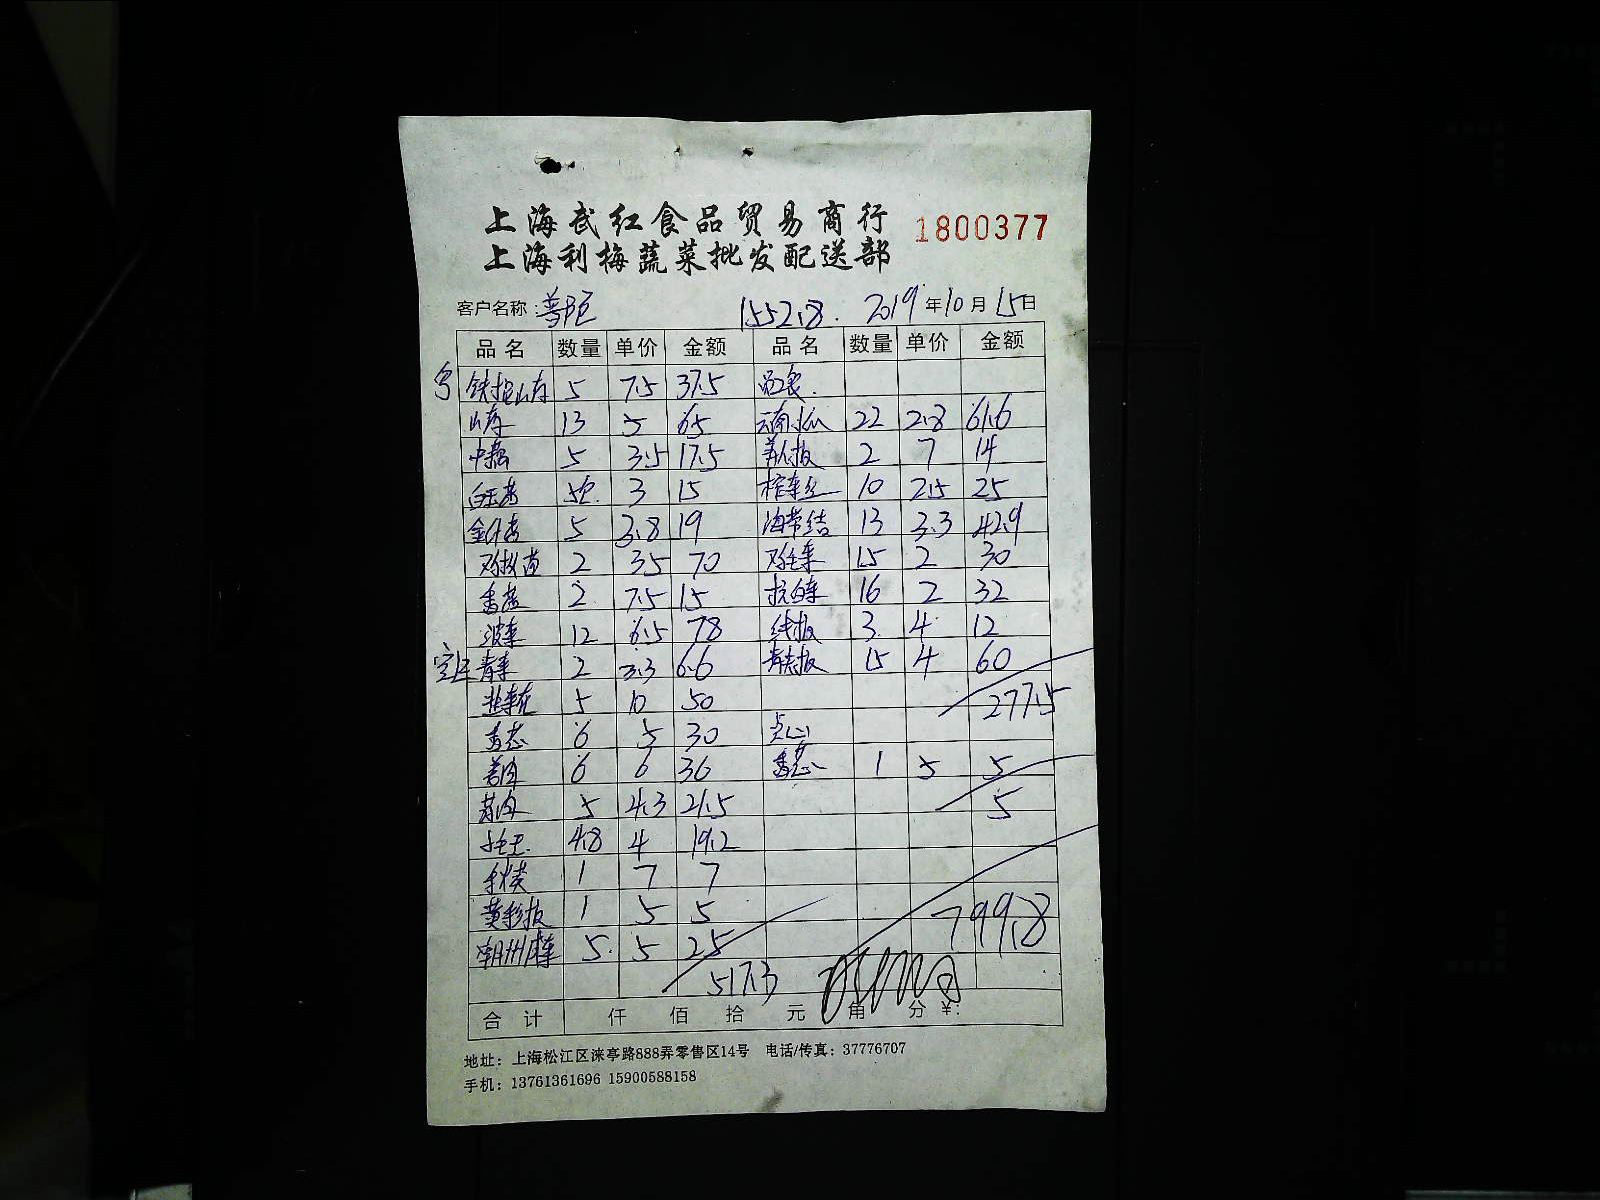 上海武红食品贸易商行
1800377
上海利梅蔬菜批发配送部
客户名称: 普陀 1552.8. 2019年10月15日
品名 数量 单价 金额 品名 数量 单价 金额
铁棍山药 5 7.5 37.5
山药 13 5 65 云南小瓜 22 2.8 61.6
中藕 5 3.5 17.5 美人椒 2 7 14
白玉菇 5包 3 15 榨菜丝 10 2.5 25
金针菇 5 3.8 19 海带结 13 3.3 42.9
2 35 70 15 2 30
香菇 2 7.5 15 杭白菜 16 2 32
菠菜 12 6.5 78 线椒 3 4 12
青菜 2 3.3 6.6 青尖椒 15 4 60
韭菜花 5 10 50 277.5
6 5 30 点心
6 6 36 1 5 5
5 4.3 21.5 5
4.8 4 19.2
1 7 7
黄彩椒 1 5 5 799.8
潮州 5 5 25
517.3
合计 仟 佰 拾 元 角 分 ¥:
地址: 上海松江区涞亭路888弄零售区14号 电话/传真: 37776707
手机: 13761361696 15900588158